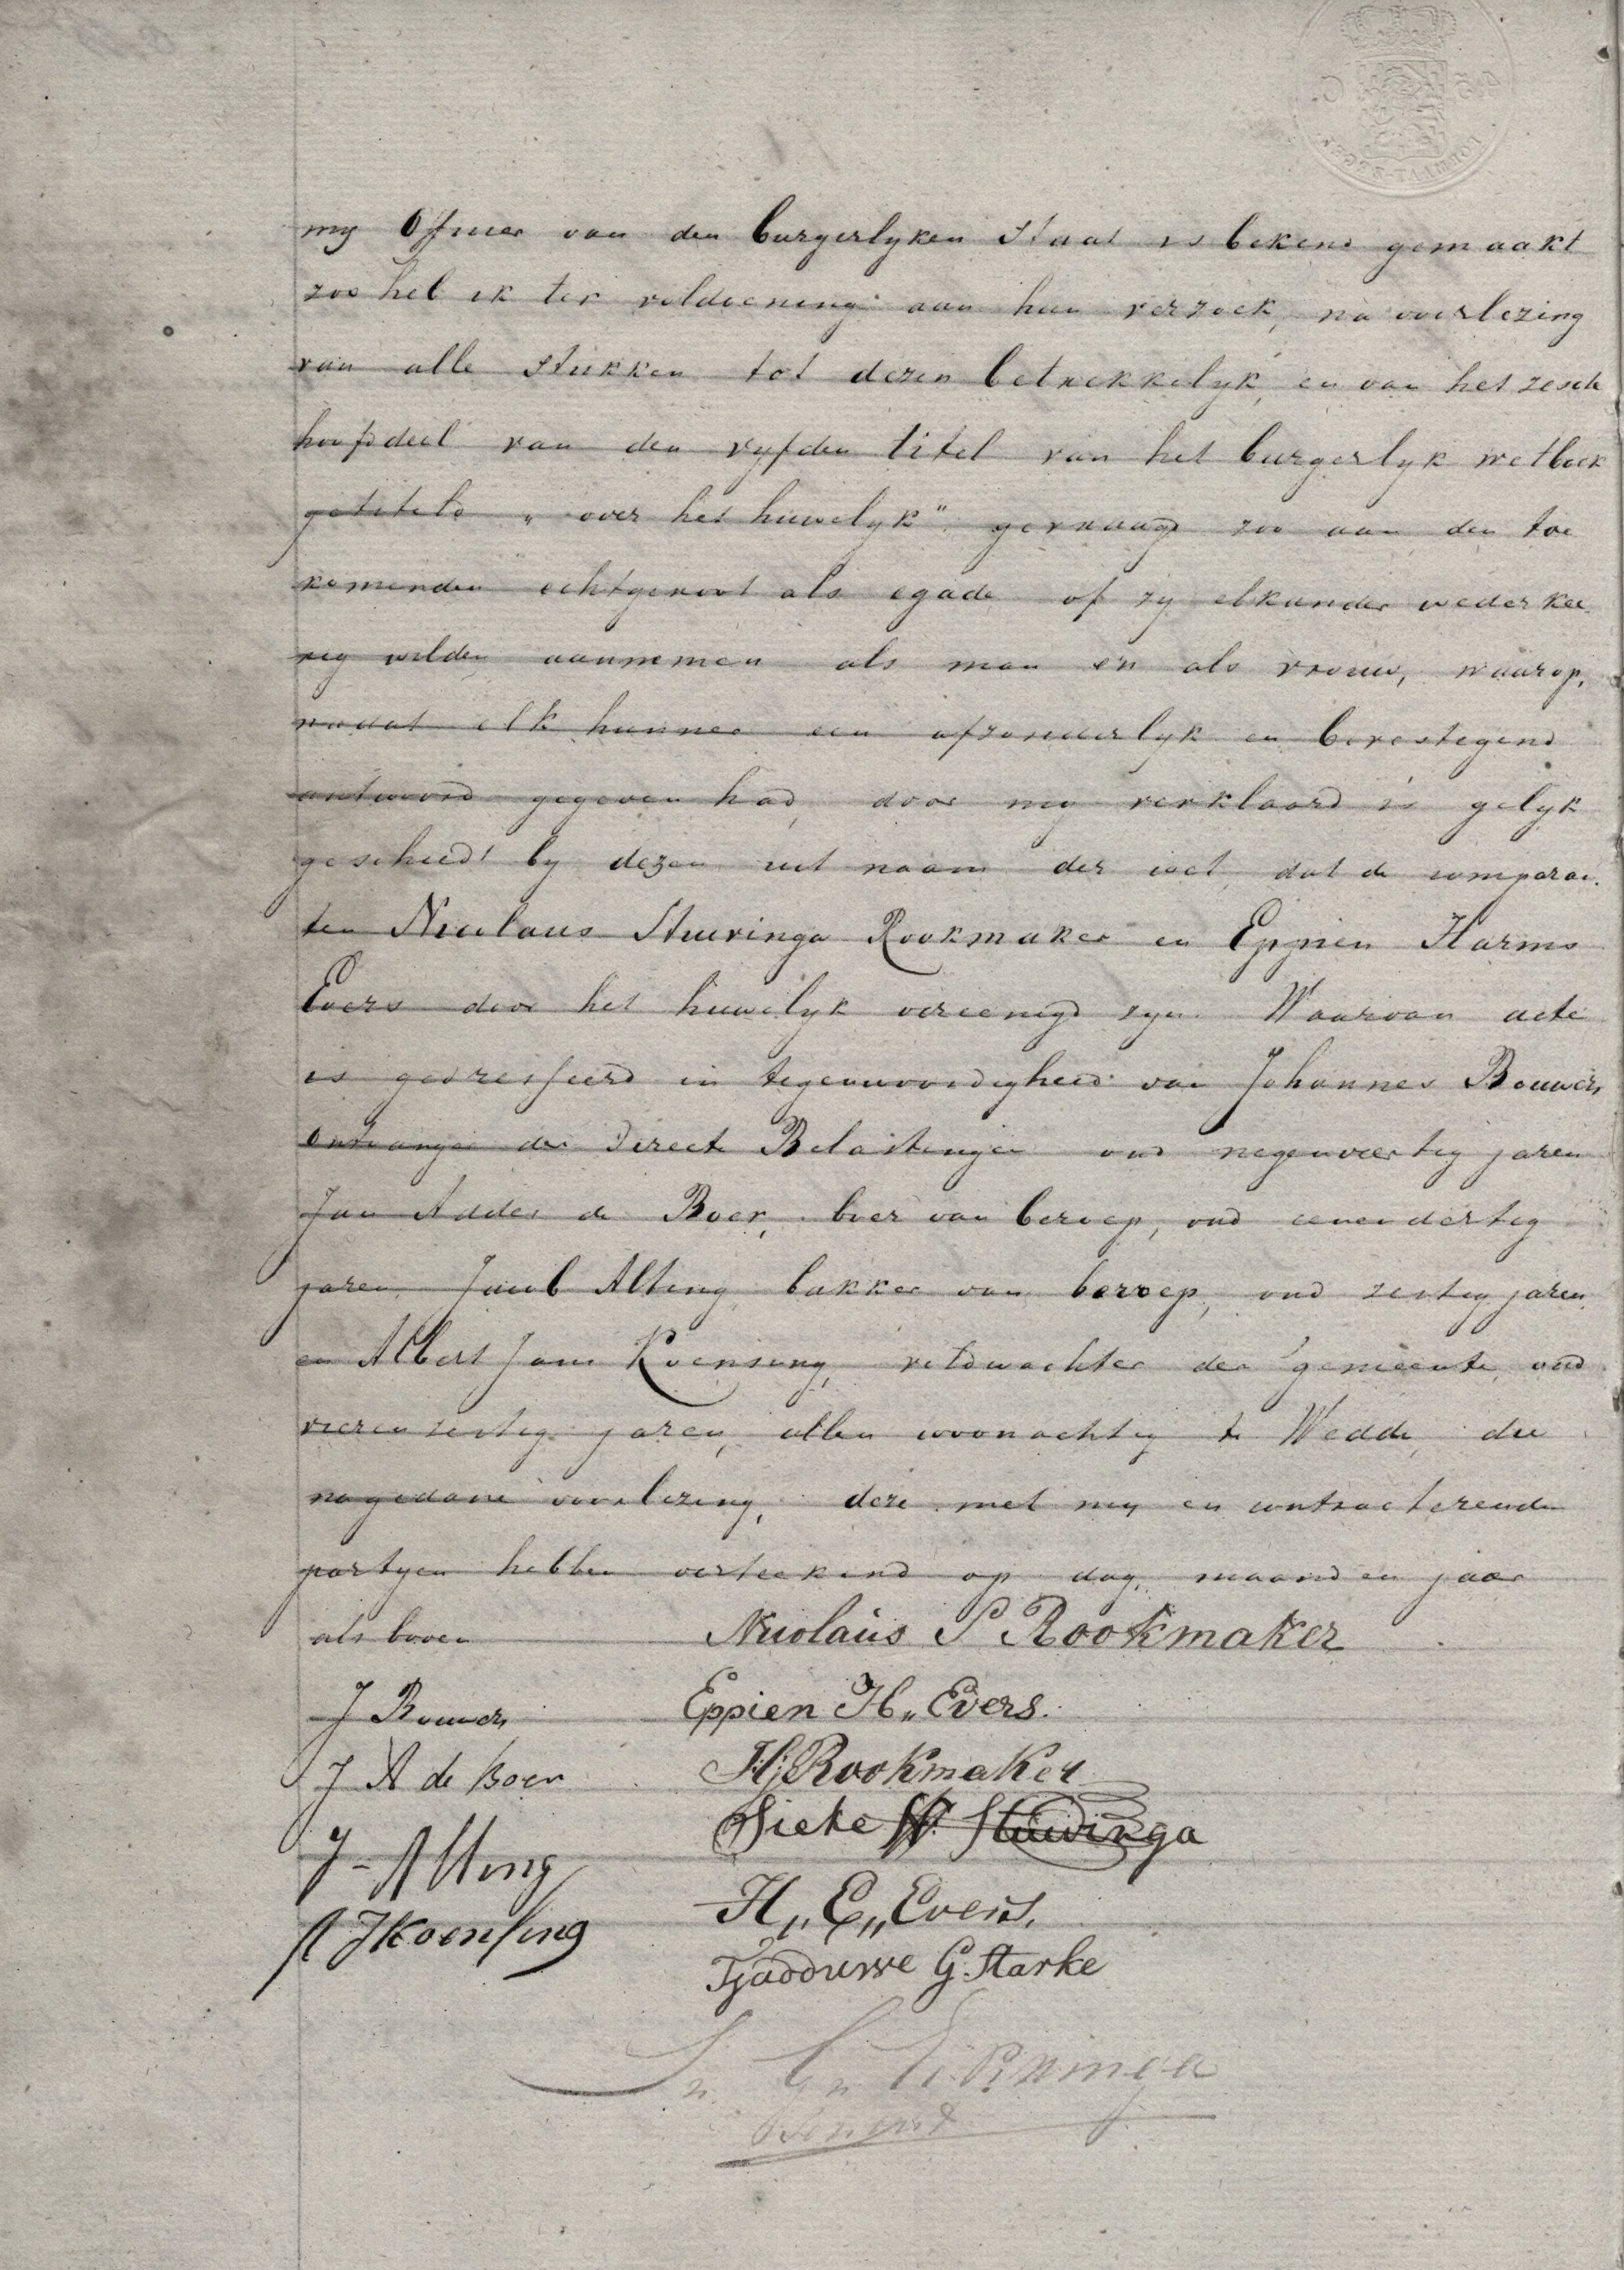 45 C.
my Officier van den burgerlyken Staat is bekend gemaakt
zoo heb ik ter voldoening aan hun verzoek, na voorlezing
van alle stukken tot dezen betrekkelyk, en van het zesde
hoofddeel van den vyfden titel van het burgerlyk wetboek
getiteld „over het huwelyk" gevraagd zoo aan den toe
komenden echtgenoot als egade of zy elkander wederkee
rig wilden aannemen als man en als vrouw, waarop,
nadat elk hunner een afzonderlyk en bevestigend
antwoord gegeven had, door my verklaard is gelyk
geschiedt by dezen uit naam der wet, dat de comparan
ten Nicolaus Stuivinga Rookmaker en Eppien Harms
Evers door het huwelyk vereenigd zyn. Waarvan acte
is gedresseerd in tegenwoordigheid van Johannes Bouwers
Ontvanger der Directe Belastingen oud negenveertig jaren
Jan Addes de Boer, boer van beroep, oud eenendertig
jaren, Jacob Alting bakker van beroep, oud zestig jaren
en Albert Jans Koensing, veldwachter der gemeente, oud
vierenzestig jaren, allen woonachtig te Wedde, die
na gedane voorlezing, deze met my en contracterende
partyen hebben verteekend op dag, maand en jaar
als boven
Nicolaüs S Rookmaker
J Bouwers
Eppien H„ Evers.
J A de Boer
Hj Rookmaker
Sieke Stuivinga
J - Alting
H„ E„ Evers,
A J Koensing
Tjadduwe G. Starke